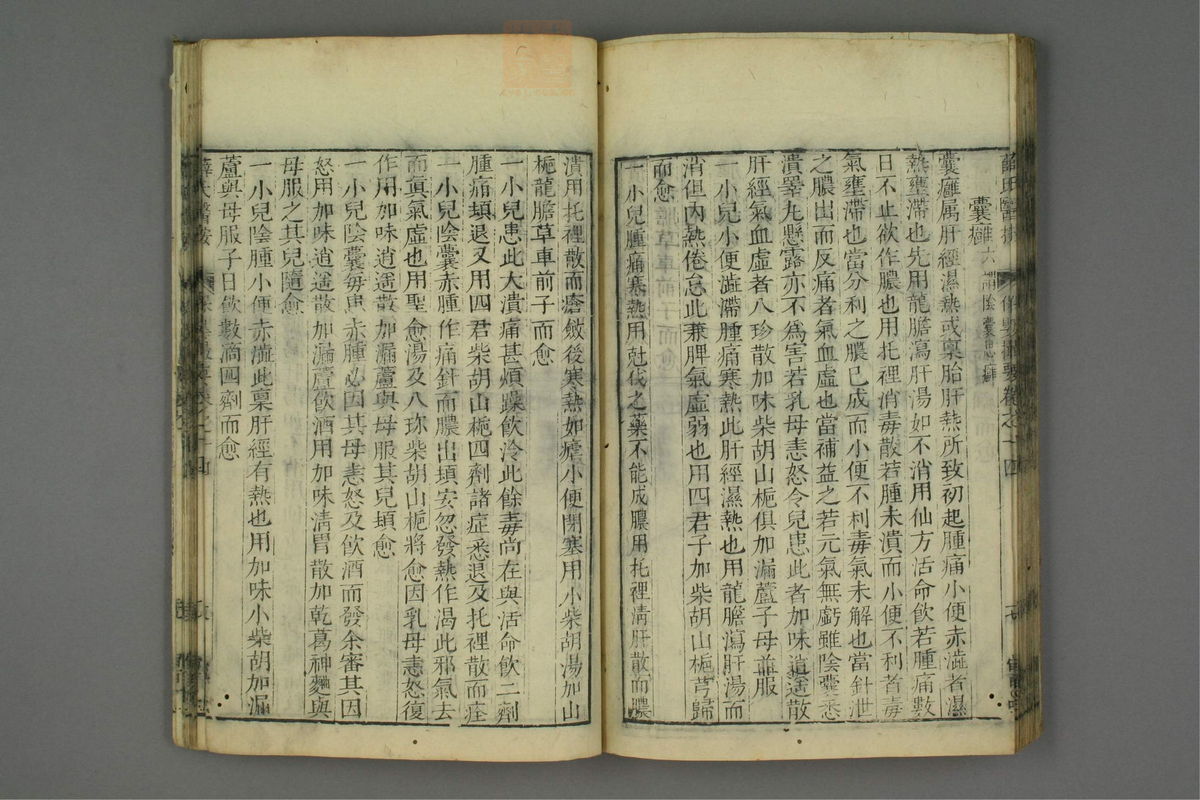 薛氏醫按
囊癰
囊癰属肝經濕熱或稟胎肝熱所致初起腫痛小便赤澁者濕
熱壅滯也先用龍膽瀉肝湯如不消用仙方活命飲若腫痛數
日不止欲作膿也用托裡消毒散若腫未潰而小便不利者毒
氣壅滯也當分利之膿已成而小便不利毒氣未解也當針泄
之膿出而反痛者氣血虛也當補益之若元氣無虧雖陰囊悉
潰睪丸懸露亦不為害若乳母恚怒令兒患此者加味逍遥散
肝經氣血虛者八珍散加味柴胡山梔俱加漏蘆子母並服
一小兒小便澁滯腫痛寒熱此肝經濕熱也用龍膽瀉肝湯而
消但內熱倦怠此兼脾氣虛弱也用四君子加柴胡山梔芎歸
而愈
一小兒腫痛寒熱用尅伐之藥不能成膿用托裡淸肝散而膿
潰用托裡散而瘡斂後寒熱如瘧小便閉塞用小柴胡湯加山
梔龍膽草車前子而愈
一小兒患此大潰痛甚煩躁飲冷此餘毒尚在與活命飲二劑
腫痛頓退又用四君柴胡山梔四劑諸症悉退及托裡散而痊
一小兒陰囊赤腫作痛針而膿出頓安忽發熱作渴此邪氣去
而眞氣虛也用聖愈湯及八珎柴胡山梔將愈因乳母恚怒復
作用加味逍遥散加漏蘆與母服其兒頓愈
一小兒陰囊每患赤腫必因其母恚怒及飲酒而發余審其因
怒用加味逍遥散加漏蘆飲酒用加味淸胃散加乾葛神麯與
母服之其兒隨愈
一小兒陰腫小便赤澁此稟肝經有熱也用加味小柴胡加漏
蘆與母服子日飲數滴四劑而愈